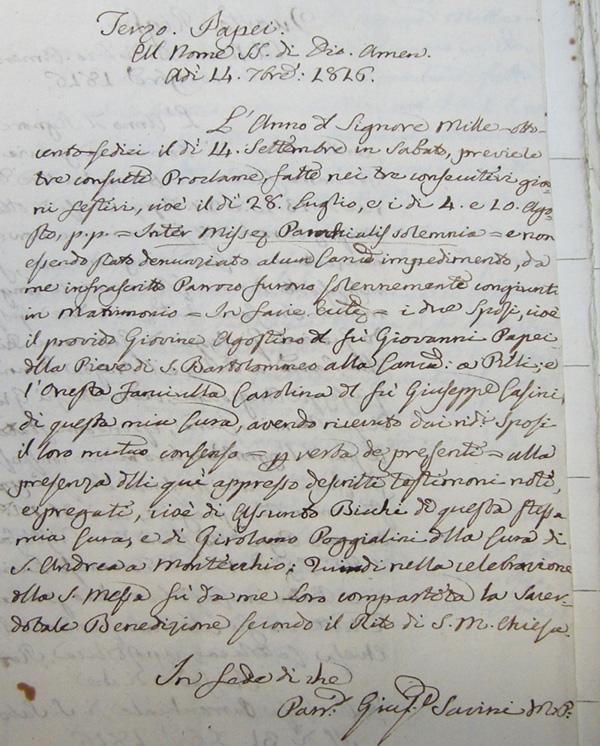 Terzo. Papei.
Al Nome SS. di Dio. Amen.
Adì 14. 7bre: 1816.
L'Anno dl Signore Mille otto
cento sedici il dì 14. Settembre in Sabato, previe le
tre consuete Proclame fatte nei tre consecutivi gior
ni festivi, cioè il dì 28. Luglio, e i dì 4. e 10. Ago-
sto, p.p. = Inter Missar Parochialis solemnia = e non
essendo stato denunziato alcun Canco impedimento, da
me infrascritto Parroco furono solennemente congiunti
in Matrimonio = In facie Eccle = i due Sposi, cioè
il provido Giovine Agostino dl fù Giovanni Papei
dlla Pieve di S. Bartolommeo alla Canca: a Pilli; e
l'Onesta Fanciulla Carolina dl fù Giuseppe Casini,
di questa mia Cura, avendo ricevuto dai ridi Sposi
il loro mutuo consenso = p verba de presenti = alla
presenza dlli quì appresso descritti testimoni noti,
e pregati, cioè di Assunto Bicchi di questa stessa
mia Cura, e di Girolamo Poggialini dlla Cura di
S. Andrea a Montecchio; Quindi nella celebrazione
dlla S. Messa fù da me loro compartita la Sacer-
dotale Benedizione secondo il Rito di S. M. Chiesa.
In fede di che
Parro Giuspe Savini M.P.